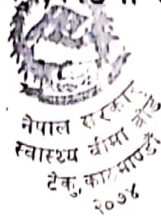 नेपाल सरकार
स्वास्थ्य बीमा बोर्ड
टेकु, काठमाण्डौं
२०७४